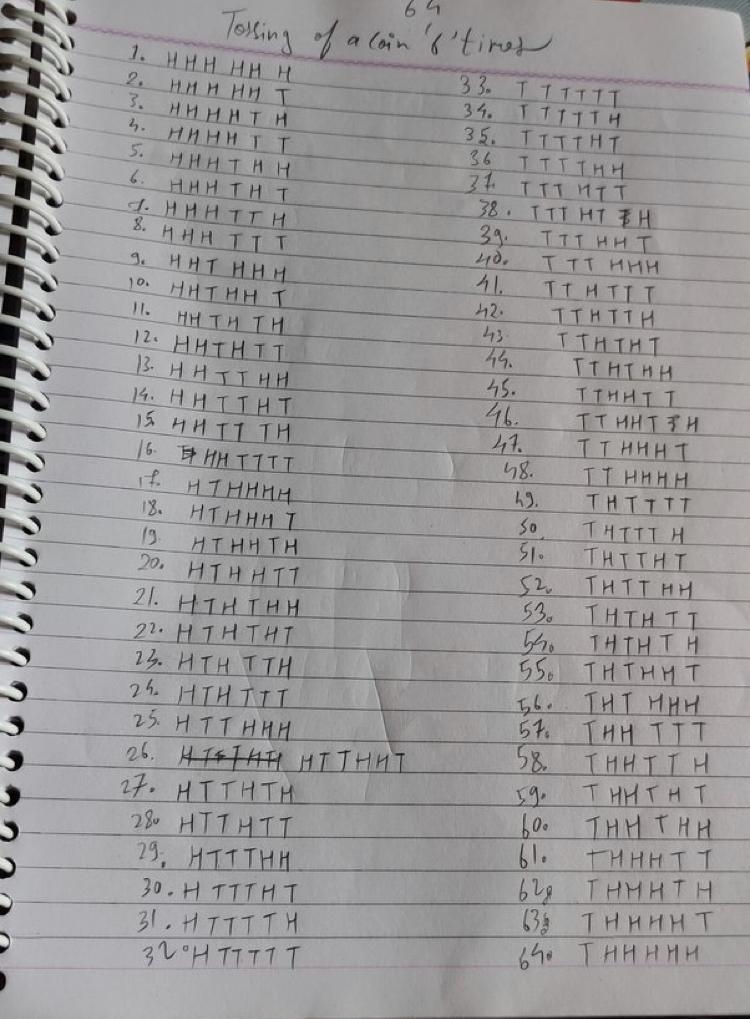 64
Tossing of a coin '6' times
1. HHH HH H
2. HHH HH T
3. HHHH T H
4. HHHH T T
5. HHH T H H
6. HHH T H T
7. HHH T T H
8. HHH T T T
9. HHT HHH
10. HHTHH T
11. HHTH TH
12. HHTH TT
13. HHTT HH
14. HHTTHT
15. HHTT TH
16. HHTTTT
17. HTHHHH
18. HTHHH T
19. HTHHTH
20. HTHHTT
21. HTHTHH
22. HTHTHT
23. HTH TTH
24. HTHTTT
25. HTTHHH
26. HTTHHT
27. HTTHTH
28. HTTHTT
29. HTTTHH
30. H TTTHT
31. HTTTTH
32. HTTTTT
33. T TTTTT
34. T TTTTH
35. TTTTHT
36 TTTTHH
37. TTT HTT
38. TTT HT H
39. TTT HH T
40. T TT HHH
41. TT H TTT
42. TTHTTH
43. TTHTHT
44. TTHTHH
45. TTHHTT
46. TTHHT H
47. TT HHHT
48. TT HHHH
49. THTTTT
50. THTTT H
51. THTTHT
52. THTT HH
53. THTH TT
54. THTHTH
55. THTHHT
56. THT HHH
57. THH TTT
58. THHTT H
59. THHTHT
60. THH THH
61. THHHTT
62. THHHTH
63. THHHHT
64. THHHHH